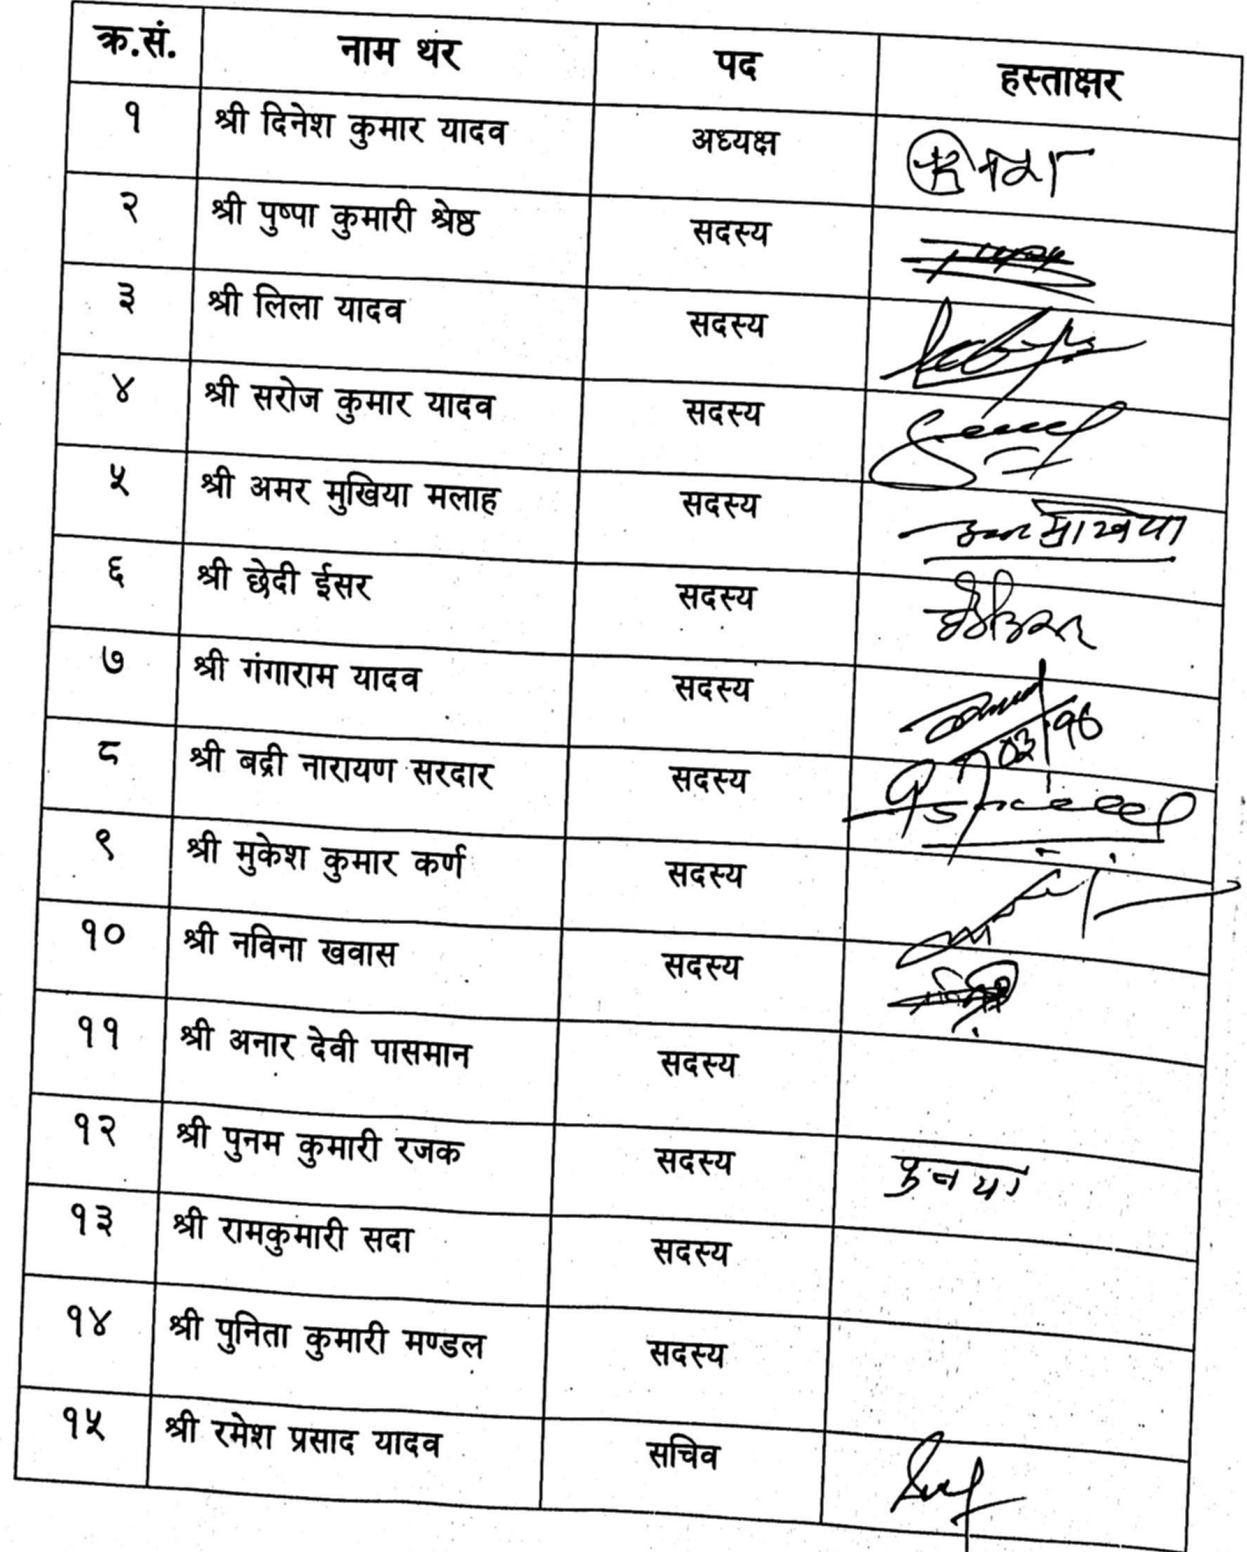 क्र.सं. नाम थर पद हस्ताक्षर
१ श्री दिनेश कुमार यादव अध्यक्ष
२ श्री पुष्पा कुमारी श्रेष्ठ सदस्य
३ श्री लिला यादव सदस्य
४ श्री सरोज कुमार यादव सदस्य
५ श्री अमर मुखिया मलाह सदस्य
६ श्री छेदी ईसर सदस्य
७ श्री गंगाराम यादव सदस्य
८ श्री बद्री नारायण सरदार सदस्य
९ श्री मुकेश कुमार कर्ण सदस्य
१० श्री नविना खवास सदस्य
११ श्री अनार देवी पासमान सदस्य
१२ श्री पुनम कुमारी रजक सदस्य
१३ श्री रामकुमारी सदा सदस्य
१४ श्री पुनिता कुमारी मण्डल सदस्य
१५ श्री रमेश प्रसाद यादव सचिव